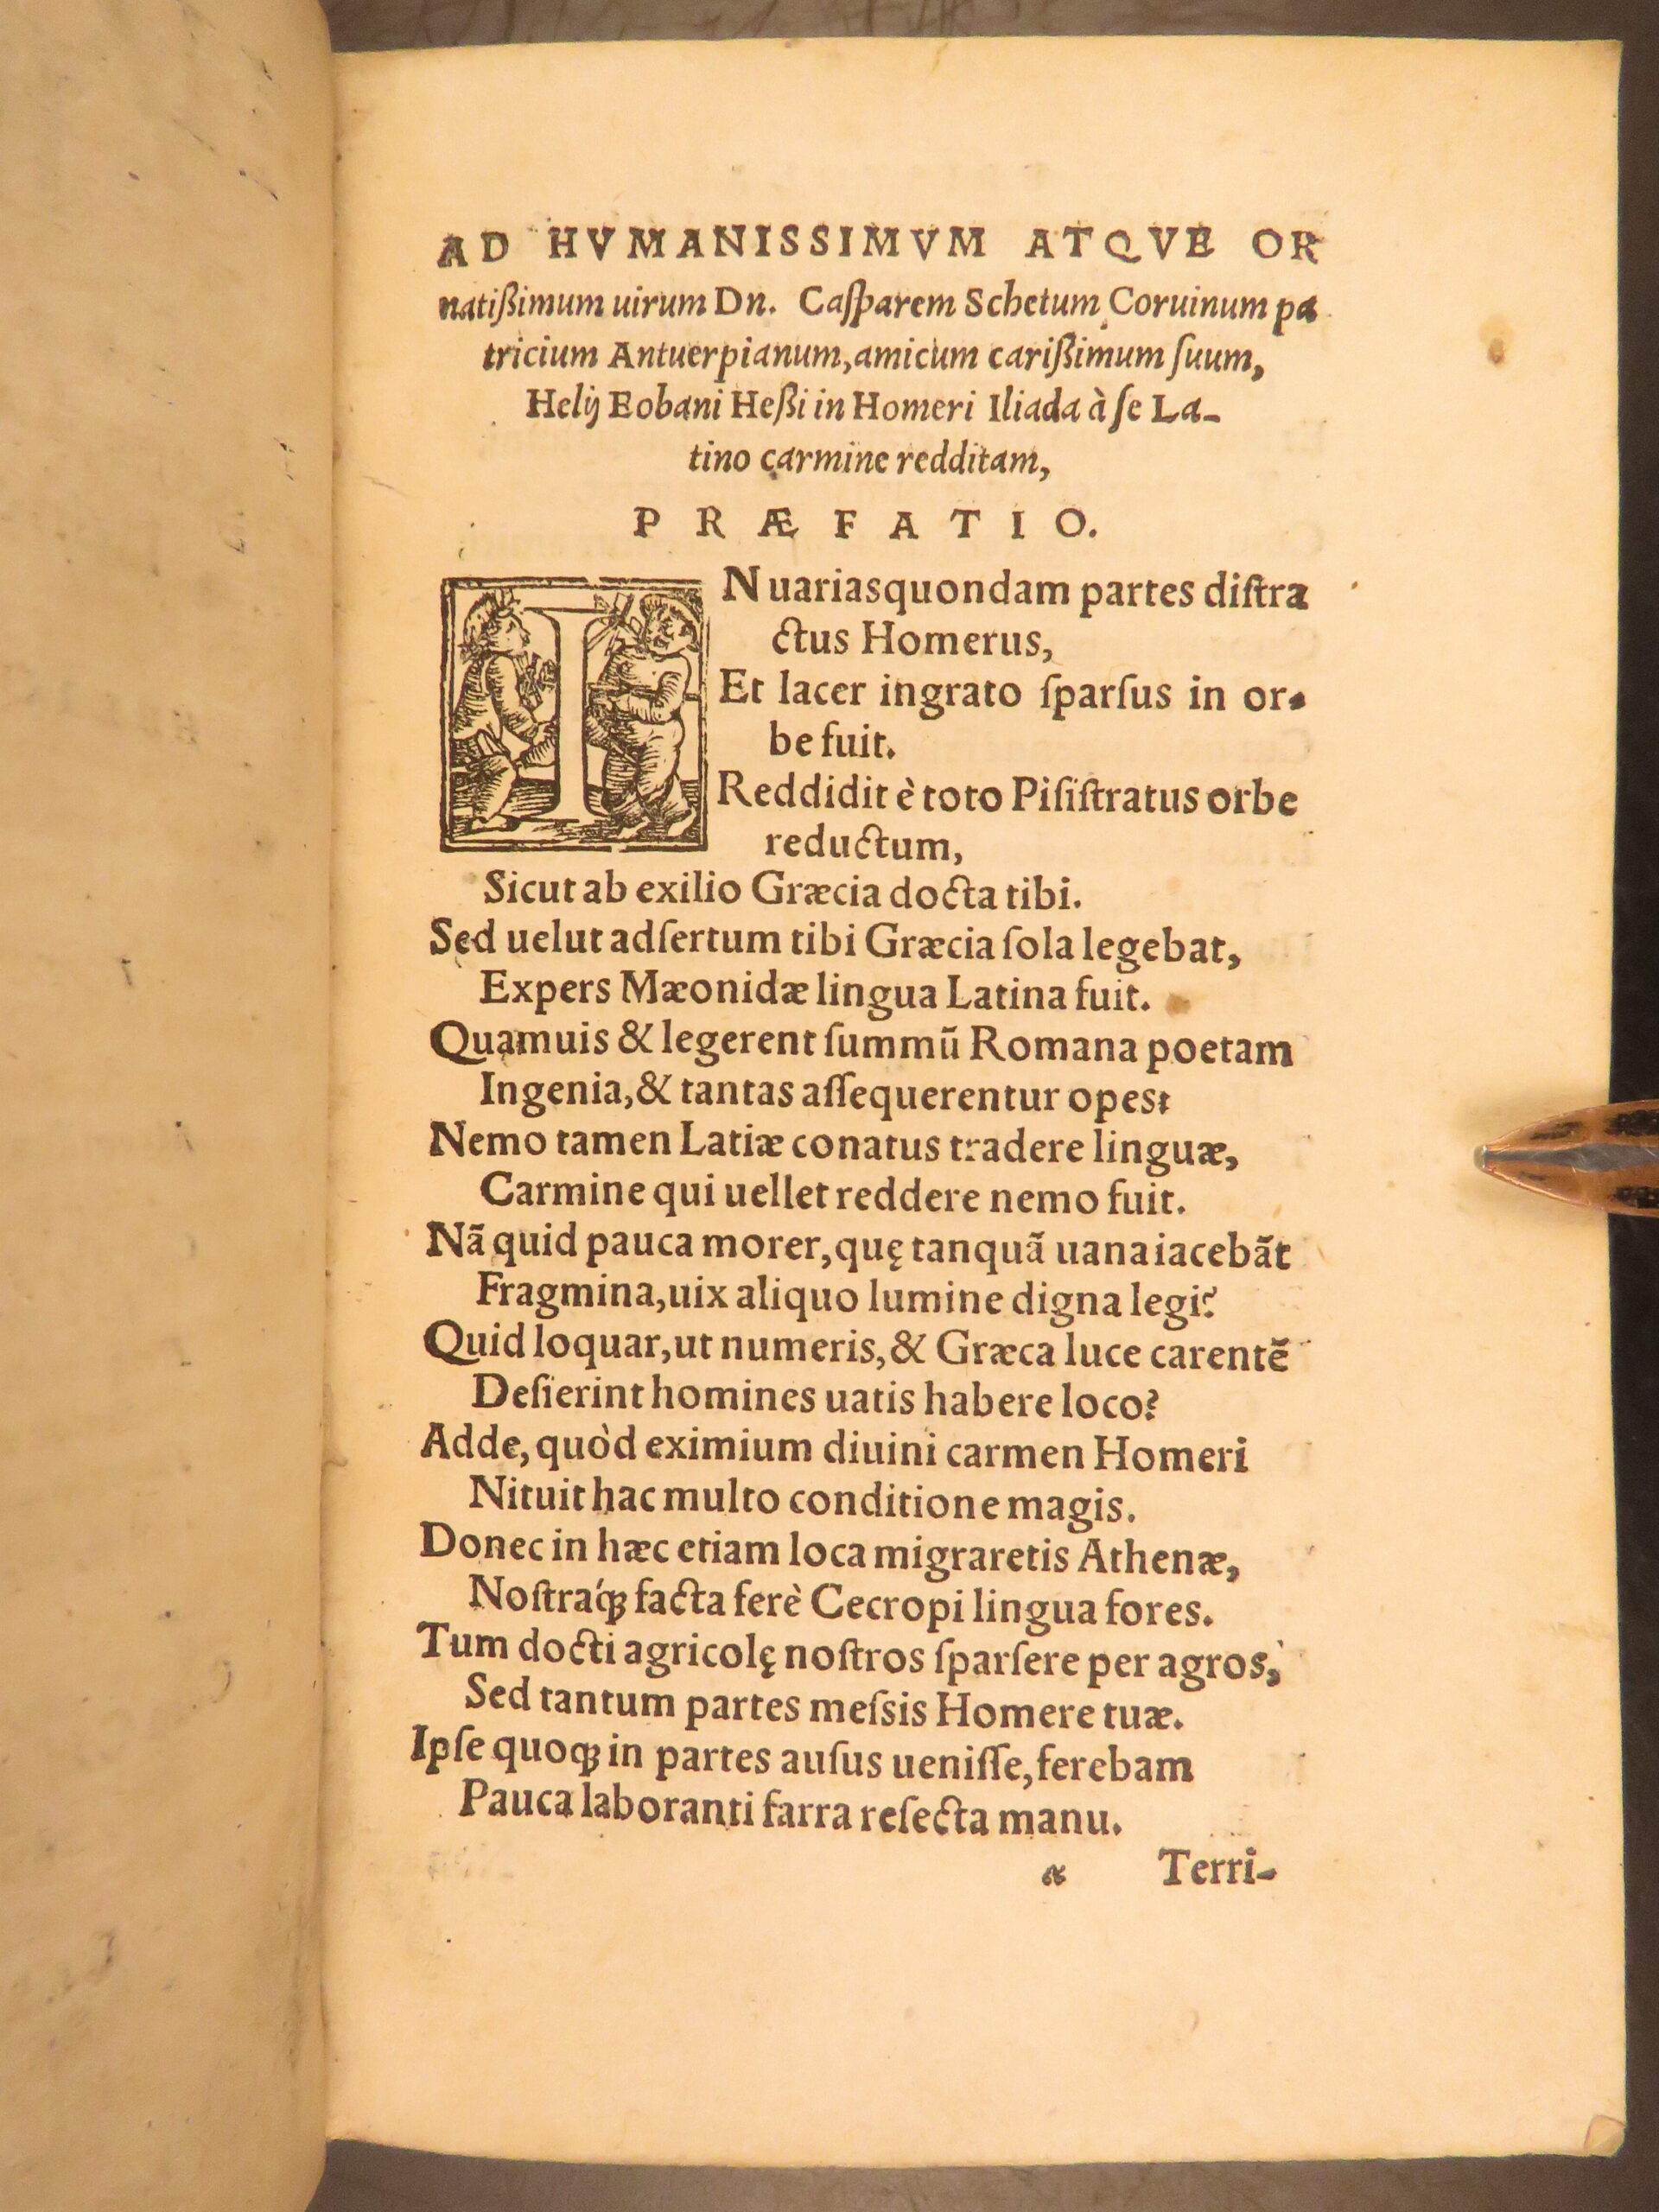 AD HVMANISSIMVM ATQVE OR
natißimum uirum Dn. Caſparem Schetum Coruinum pa
tricium Antuerpianum, amicum carißimum ſuum,
Helij Eobani Heßi in Homeri Iliada à ſe La-
tino carmine redditam,
PRÆFATIO.
IN uarias quondam partes diſtra
ctus Homerus,
Et lacer ingrato ſparſus in or-
be fuit.
Reddidit è toto Piſiſtratus orbe
reductum,
Sicut ab exilio Græcia docta tibi.
Sed uelut adſertum tibi Græcia ſola legebat,
Expers Mæonidæ lingua Latina fuit.
Quamuis & legerent ſummũ Romana poetam
Ingenia, & tantas aſſequerentur opes:
Nemo tamen Latiæ conatus tradere linguæ,
Carmine qui uellet reddere nemo fuit.
Nã quid pauca morer, quę tanquã uana iacebãt
Fragmina, uix aliquo lumine digna legi?
Quid loquar, ut numeris, & Græca luce carentẽ
Deſierint homines uatis habere loco?
Adde, quòd eximium diuini carmen Homeri
Nituit hac multo conditione magis.
Donec in hæc etiam loca migraretis Athenæ,
Noſtraq́ꝫ facta ferè Cecropi lingua fores.
Tum docti agricolę noſtros ſparſere per agros,
Sed tantum partes meſsis Homere tuæ.
Ipſe quoqꝫ in partes auſus ueniſſe, ferebam
Pauca laboranti farra reſecta manu.
α Terri-